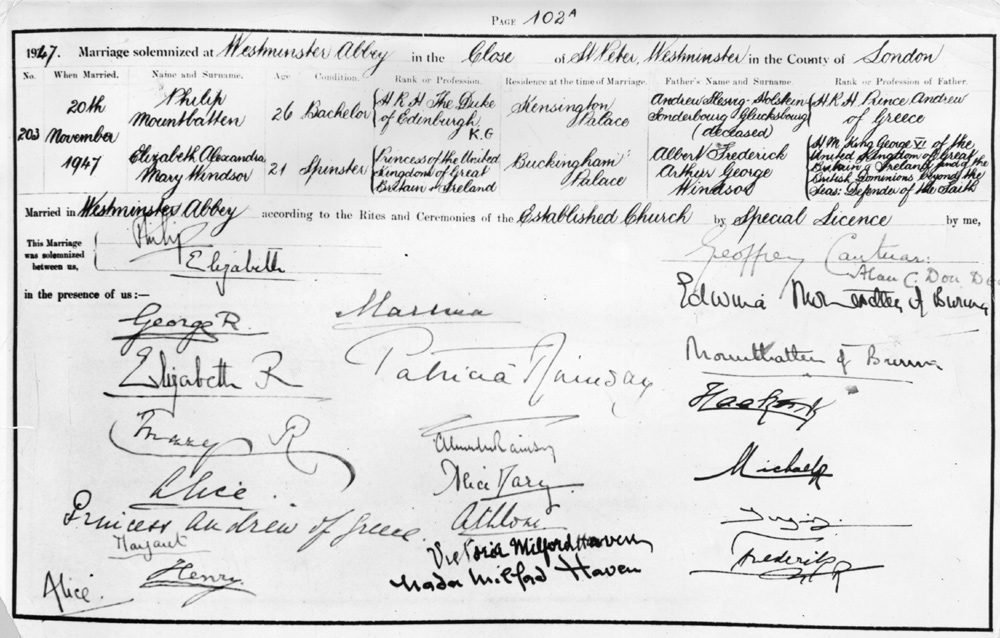 PAGE 102A
1947. Marriage solemnized at Westminster Abbey in the Close of St Peter, Westminster in the County of London
No. When Married. Name and Surname. Age Condition. Rank or Profession. Residence at the time of Marriage. Father's Name and Surname. Rank or Profession of Father.
203
20th
November
1947
Philip
Mountbatten
26 Bachelor
H R H The Duke
of Edinburgh
K.G
Kensington
Palace
Andrew Slesvig-Holstein
Sonderbourg Glucksbourg
(deceased)
H R H Prince Andrew
of Greece
Elizabeth Alexandra
Mary Windsor
21 Spinster
Princess of the United
Kingdom of Great
Britain & Ireland
Buckingham
Palace
Albert Frederick
Arthur George
Windsor
H M King George VI of the
United Kingdom of Great
Britain & Ireland and of the
British Dominions beyond the
Seas: Defender of the Faith
Married in Westminster Abbey according to the Rites and Ceremonies of the Established Church by Special Licence by me,
This Marriage
was solemnized
between us,
Philip
Elizabeth
Geoffrey Cantuar:
Alan C Don
in the presence of us:—
George R.
Elizabeth R
Mary R
Alice
Princess Andrew of Greece.
Margaret
Henry.
Alice.
Marina
Patricia Ramsay
Alexander Ramsay
Alice Mary
Athlone
Victoria Milford Haven
Nada Milford Haven
Edwina Mountbatten of Burma
Mountbatten of Burma
Haakon R
Michael R
Frederik R